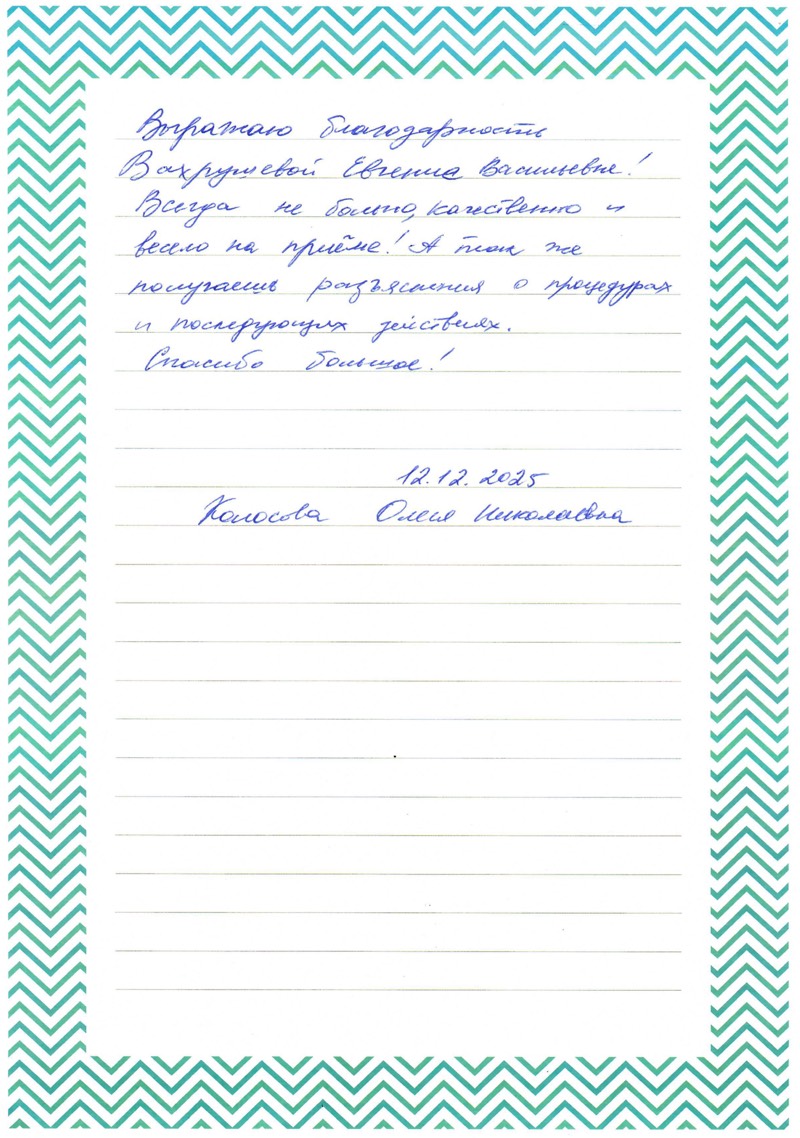 Выражаю благодарность
Вахрушевой Евгении Васильевне!
Всегда не больно, качественно и
весело на приёме! А так же
получаешь разъяснения о процедурах
и последующих действиях.
Спасибо большое!
12.12.2025
Колосова Олеся Николаевна